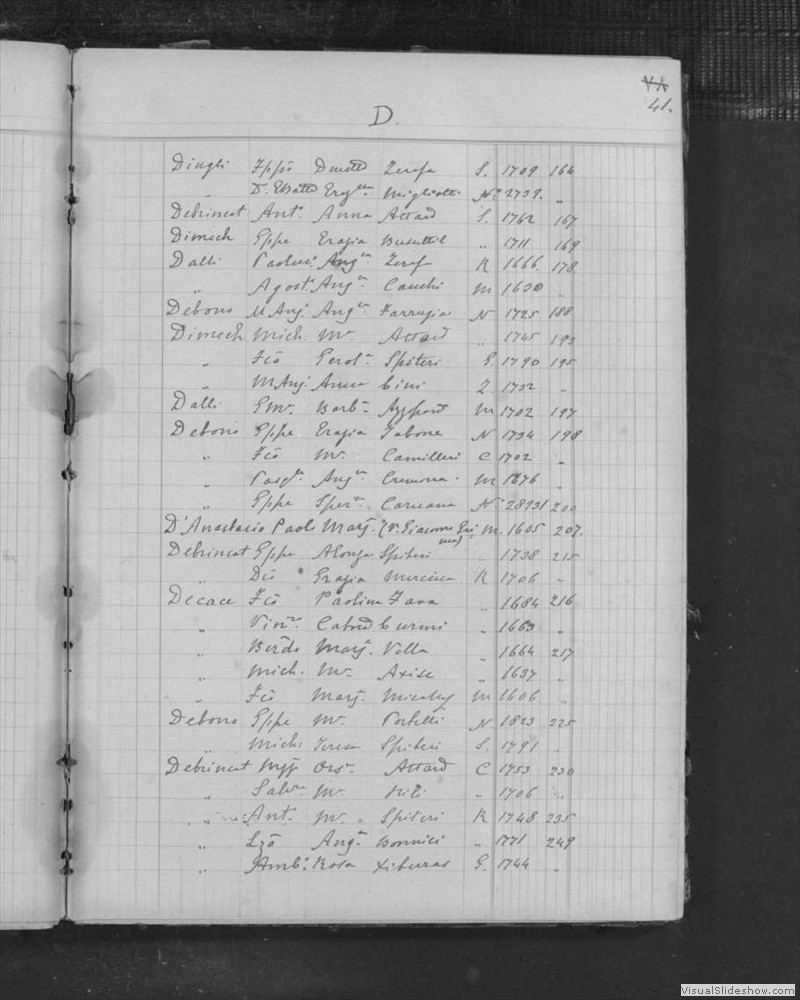 41.
D.
Dingli Zerafa S. 1709 164
„ Migliotti N. 2739. „
Debrincat Ant. Anna Attard S. 1762 167
Dimech Gppe Grazia Busuttil „ 1711 169
Dalli Ang. Zeraf. R 1666. 178
„ Agost. Ang. Cauchi M 1630 „
Debono M Anj. Ang. Farrugia N 1725 188
Dimech Mich. Mr. Attard „ 1745 193
„ Fco Gerol. Spiteri G. 1790 195
„ M Anj. Anna Cini Z. 1732 „
Dalli Gmr. Barb. M 1702 197
Debono Gppe Grazia Tabone N 1734 198
„ Fco Mr. Camilleri C 1702 „
„ Pasq. Ang. Cremona. M 1676 „
„ Gppe Caruana N. 200
D'Anastasio Paolo Marj. (V. Giacomo M. 1605 207.
Debrincat Gppe Alonza Spiteri „ 1738 215
„ Dco Grazia Mercieca R 1706 „
Decace Fco Paolina Zava „ 1684 216
„ Vinz. Curmi „ 1663 „
„ Berdo Marj. Vella „ 1664 217
„ Mich. Mr. Axise „ 1637 „
„ Fco Marj. Micalef M 1606 „
Debono Gppe Mr. Portelli N 1823 225
„ Mich. Teresa Spiteri S. 1791 „
Debrincat Ors. Attard C 1753 230
„ Salv. Mr. Hili „ 1706 „
„ Ant. Mr. Spiteri R 1748 235
„ Lzo Ang. Bonnici „ 1771 249
„ Amb. Rosa Xiberras G. 1744 „
VisualSlideshow.com